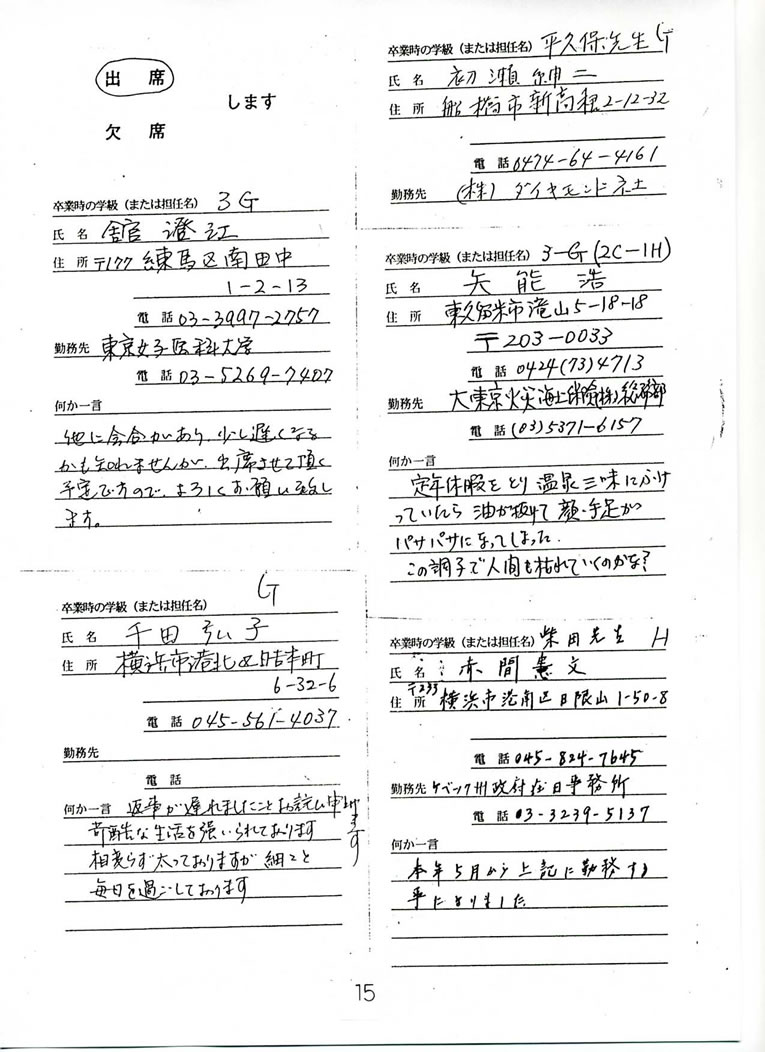 出席
します
欠席
卒業時の学級（または担任名） 3G
氏名 舘 澄江
住所 〒177 練馬区南田中
1-2-13
電話 03-3997-2757
勤務先 東京女子医科大学
電話 03-5269-7407
何か一言
他に会合があり、少し遅くなる
かも知れませんが、出席させて頂く
予定ですので、よろしくお願い致し
ます。
卒業時の学級（または担任名） G
氏名 千田 弘子
住所 横浜市港北区日吉本町
6-32-6
電話 045-561-4037
勤務先
電話
何か一言 返事が遅れましたことお詫び申し上げます
苛酷な生活を強いられております
相変らず太っておりますが細々と
毎日を過ごしております
卒業時の学級（または担任名） 平久保先生 G
氏名 初瀬 伸二
住所 船橋市新高根2-12-32
電話 0474-64-4161
勤務先 (株) ダイヤモンド社
卒業時の学級（または担任名） 3-G (2C-1H)
氏名 矢能 浩
住所 東久留米市滝山5-18-18
〒203-0033
電話 0424(73)4713
勤務先 大東京火災海上保険(株)総務部
電話 (03)5371-6157
何か一言
定年休暇をとり温泉三昧にふけ
っていたら油が抜けて顔・手足が
パサパサになってしまった.
この調子で人間も枯れていくのかな？
卒業時の学級（または担任名） 柴田先生 H
氏名 赤間 憲文
住所 〒233 横浜市港南区日限山1-50-8
電話 045-824-7645
勤務先 ケベック州政府在日事務所
電話 03-3239-5137
何か一言
本年5月から上記に勤務する
事になりました
15